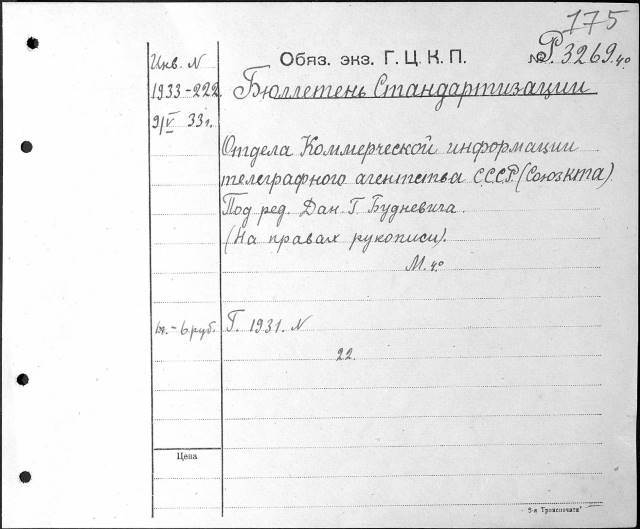 175
Инв. N
Обяз. экз. Г. Ц. К. П.
№ Р. 3269.4о
1933-222
Бюллетень Стандартизации
9/V 33 г.
Отдела Коммерческой информации
телеграфного агентства С.С.С.Р. (Союзкта).
Под ред. Дан. Г. Будневича.
(На правах рукописи).
М. 4о
6 руб.
Г. 1931. N
22.
Цена